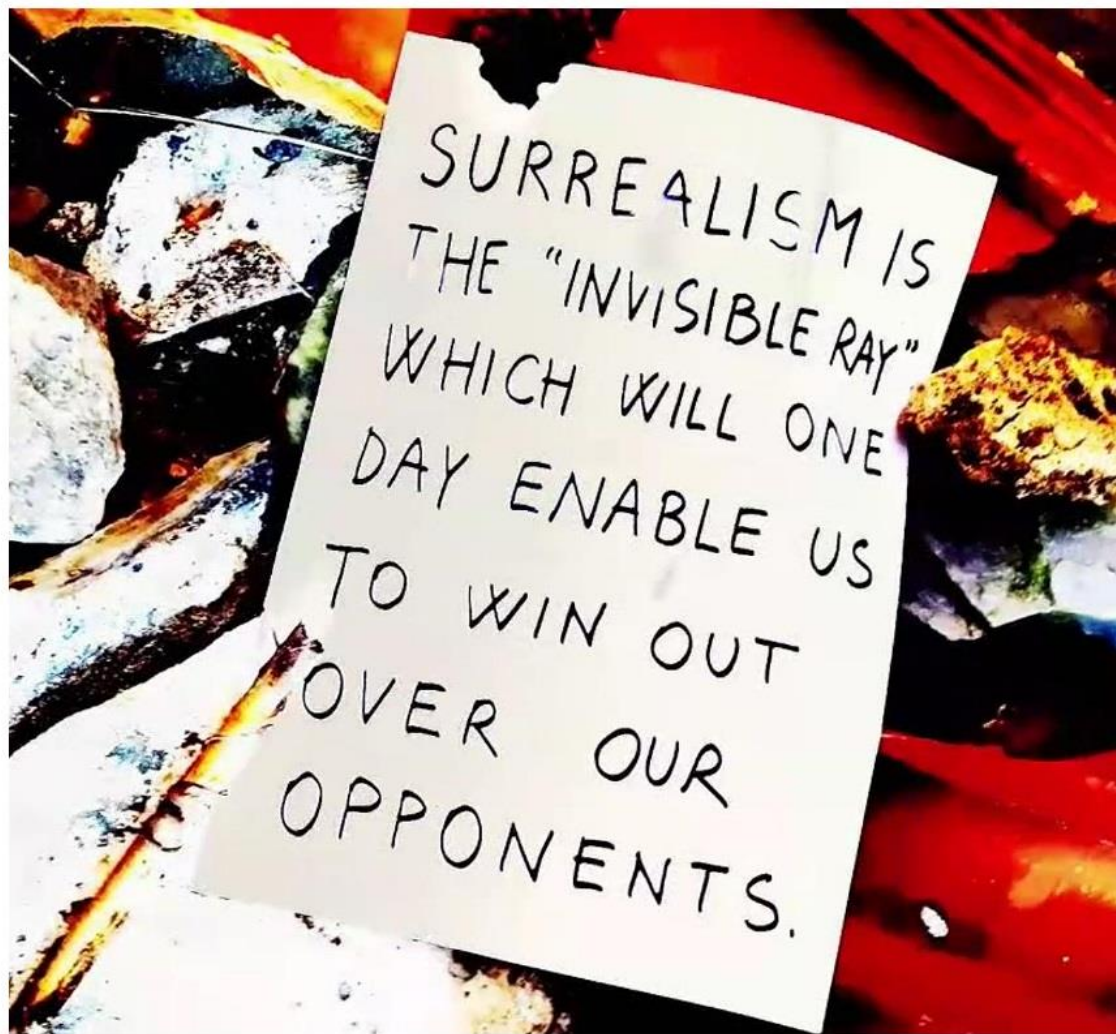 SURREALISM IS
THE “INVISIBLE RAY”
WHICH WILL ONE
DAY ENABLE US
TO WIN OUT
OVER OUR
OPPONENTS.